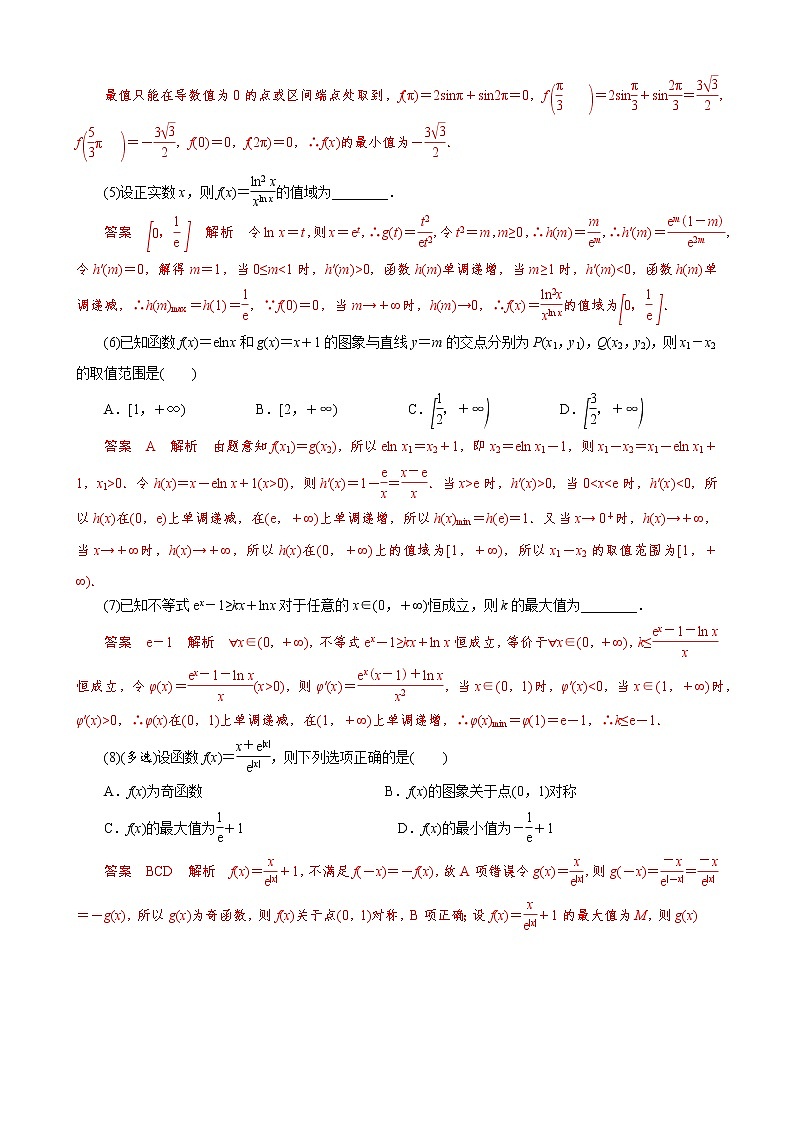 最值只能在导数值为0的点或区间端点处取到，f(π)=2sinπ+sin2π=0，f(π/3)=2sinπ/3+sin2π/3=3√3/2，
f(5/3π)=-3√3/2，f(0)=0，f(2π)=0，∴f(x)的最小值为-3√3/2.
(5)设正实数x，则f(x)=ln²x/x^(ln x)的值域为________.
答案 [0，1/e] 解析 令ln x=t，则x=e^t，∴g(t)=t²/e^(t²)，令t²=m，m≥0，∴h(m)=m/e^m，∴h′(m)=e^m(1-m)/e^(2m)，
令h′(m)=0，解得m=1，当0≤m<1时，h′(m)>0，函数h(m)单调递增，当m≥1时，h′(m)<0，函数h(m)单
调递减，∴h(m)max=h(1)=1/e，∵f(0)=0，当m→+∞时，h(m)→0，∴f(x)=ln²x/x^(ln x)的值域为[0，1/e].
(6)已知函数f(x)=elnx和g(x)=x+1的图象与直线y=m的交点分别为P(x₁，y₁)，Q(x₂，y₂)，则x₁-x₂
的取值范围是( )
A．[1，+∞) B．[2，+∞) C．[1/2，+∞) D．[3/2，+∞)
答案 A 解析 由题意知f(x₁)=g(x₂)，所以eln x₁=x₂+1，即x₂=eln x₁-1，则x₁-x₂=x₁-eln x₁+
1，x₁>0．令h(x)=x-eln x+1(x>0)，则h′(x)=1-e/x=(x-e)/x．当x>e时，h′(x)>0，当0<x<e时，h′(x)<0，所
以h(x)在(0，e)上单调递减，在(e，+∞)上单调递增，所以h(x)min=h(e)=1．又当x→0⁺时，h(x)→+∞，
当x→+∞时，h(x)→+∞，所以h(x)在(0，+∞)上的值域为[1，+∞)，所以x₁-x₂的取值范围为[1，+
∞)．
(7)已知不等式e^x-1≥kx+lnx对于任意的x∈(0，+∞)恒成立，则k的最大值为________．
答案 e-1 解析 ∀x∈(0，+∞)，不等式e^x-1≥kx+ln x恒成立，等价于∀x∈(0，+∞)，k≤(e^x-1-ln x)/x
恒成立，令φ(x)=(e^x-1-ln x)/x(x>0)，则φ′(x)=(e^x(x-1)+ln x)/x²，当x∈(0，1)时，φ′(x)<0，当x∈(1，+∞)时，
φ′(x)>0，∴φ(x)在(0，1)上单调递减，在(1，+∞)上单调递增，∴φ(x)min=φ(1)=e-1，∴k≤e-1．
(8)(多选)设函数f(x)=(x+e^|x|)/e^|x|，则下列选项正确的是( )
A．f(x)为奇函数 B．f(x)的图象关于点(0，1)对称
C．f(x)的最大值为1/e+1 D．f(x)的最小值为-1/e+1
答案 BCD 解析 f(x)=x/e^|x|+1，不满足f(-x)=-f(x)，故A项错误令g(x)=x/e^|x|，则g(-x)=-x/e^|-x|=-x/e^|x|
=-g(x)，所以g(x)为奇函数，则f(x)关于点(0，1)对称，B项正确；设f(x)=x/e^|x|+1的最大值为M，则g(x)